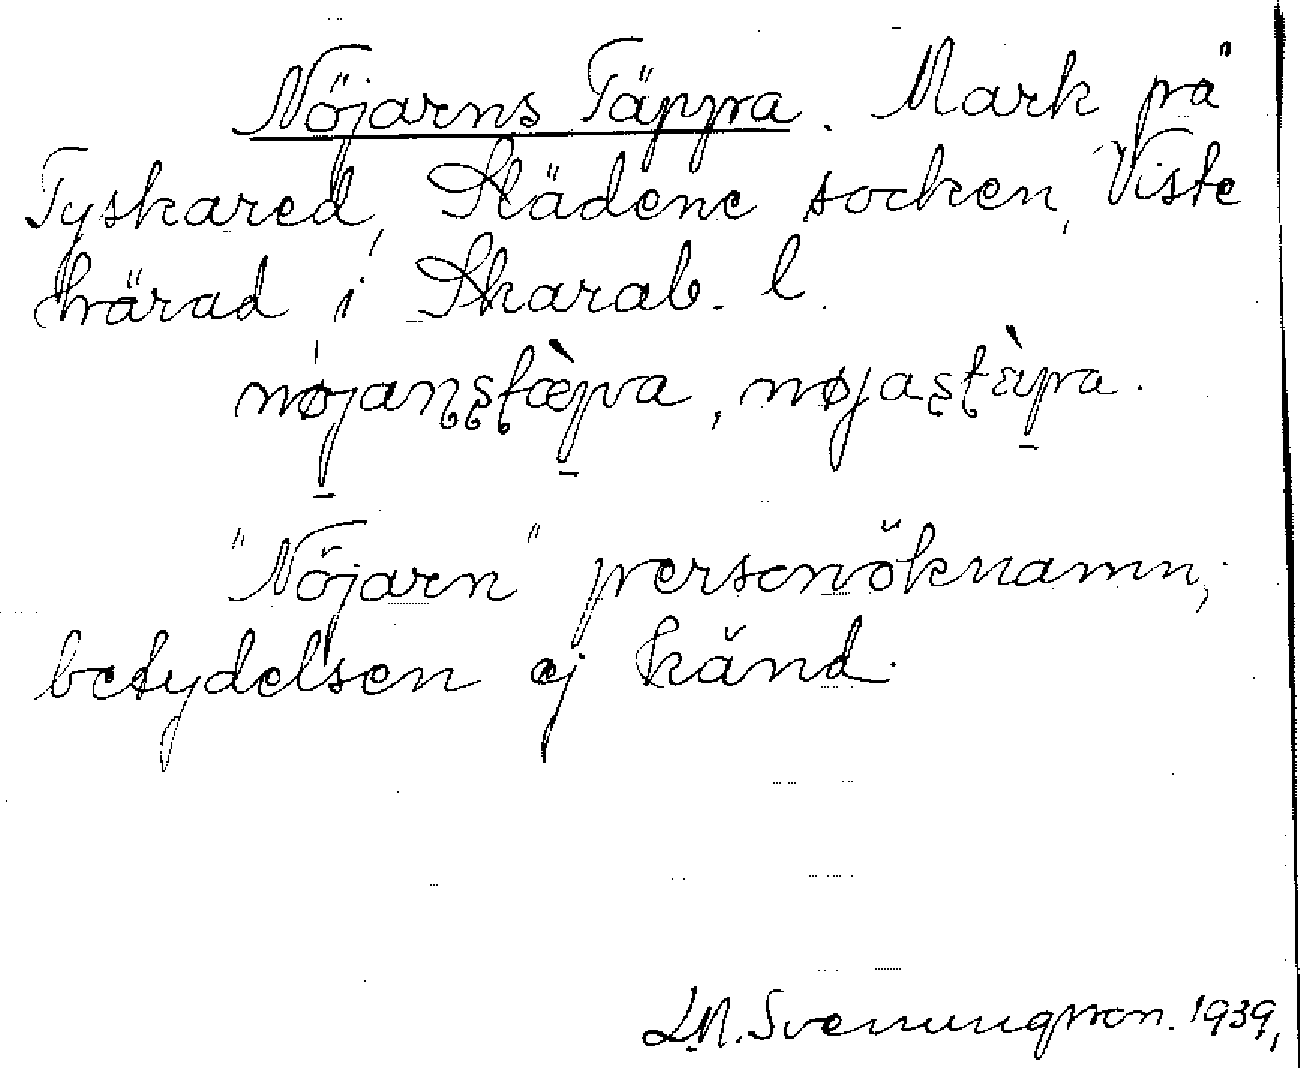 Nöjarns Täppa. Mark på
Tyskared, Slädene socken, Viste
härad i Skarab. l.
nøjanstæ̀pa, nøjastæ̀pa.
"Nöjarn" personöknamn,
betydelsen ej känd.
L.N. Svenungsson. 1939,